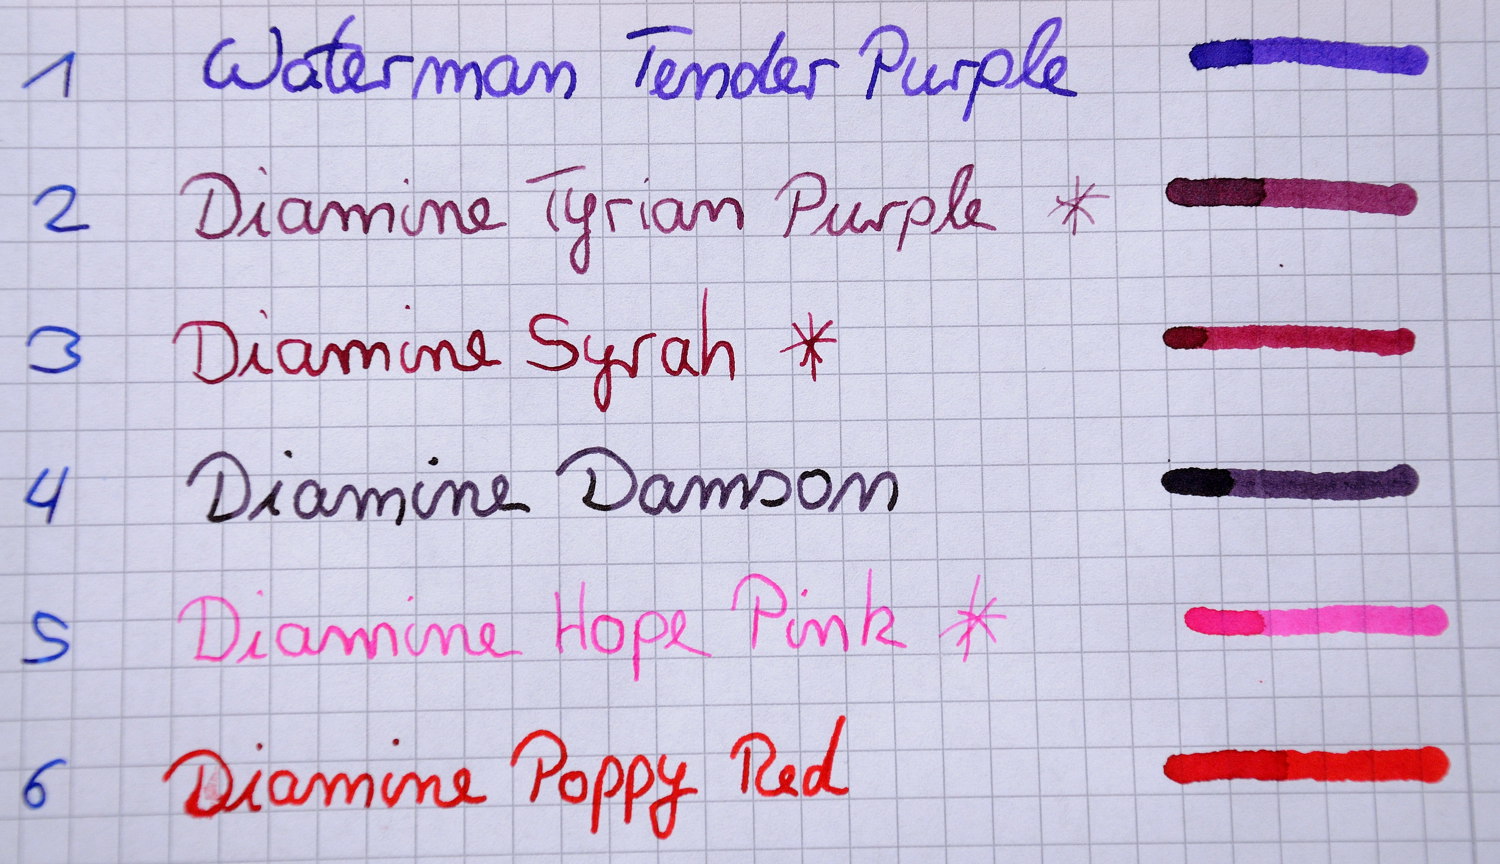 1 Waterman Tender Purple
2 Diamine Tyrian Purple *
3 Diamine Syrah *
4 Diamine Damson
5 Diamine Hope Pink *
6 Diamine Poppy Red